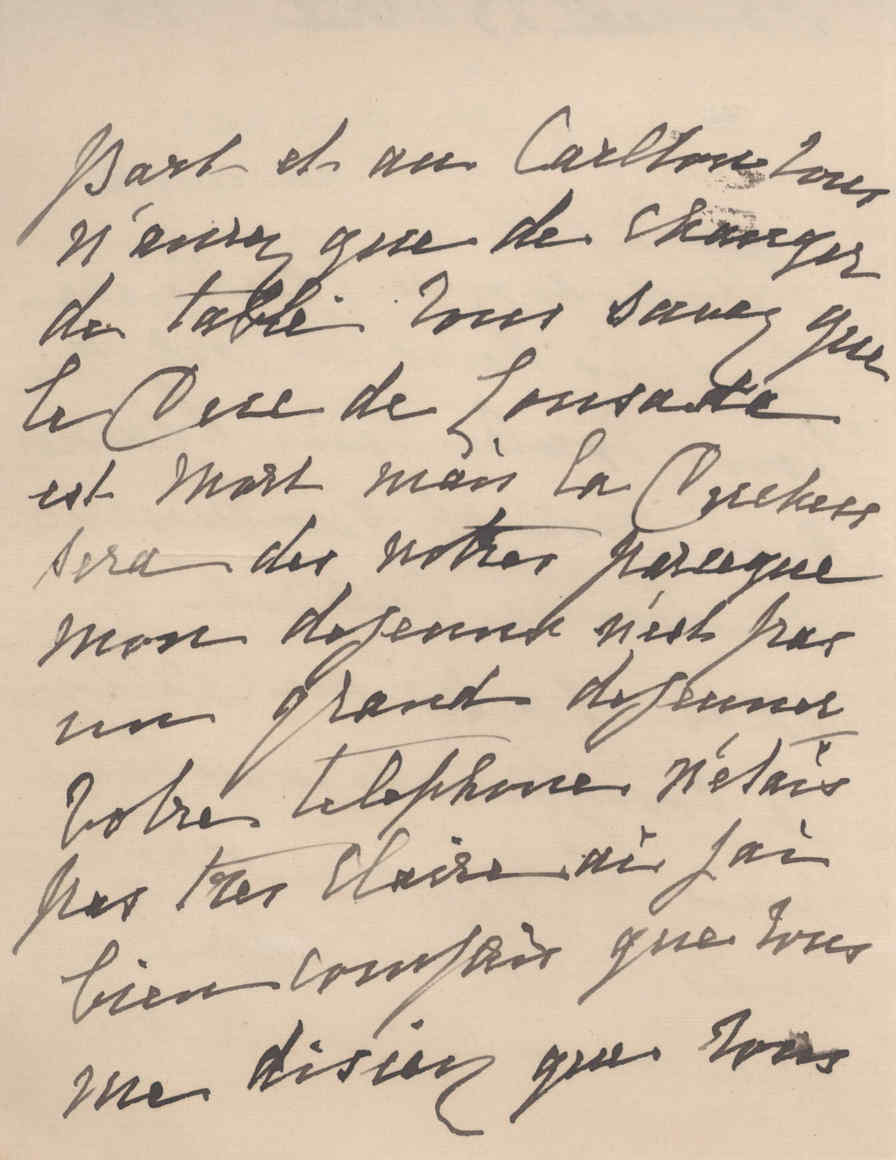 part et au Carlton vous
n'aurez que de changer
de table. Vous savez que
le Duc de Lousada
est mort mais la Duchess
sera des notres parceque
mon dejeuner n'est pas
un grand dejeuner
Votre telephone n'étais
pas tres claire j'ai
bien compris que vous
me disiez que vous